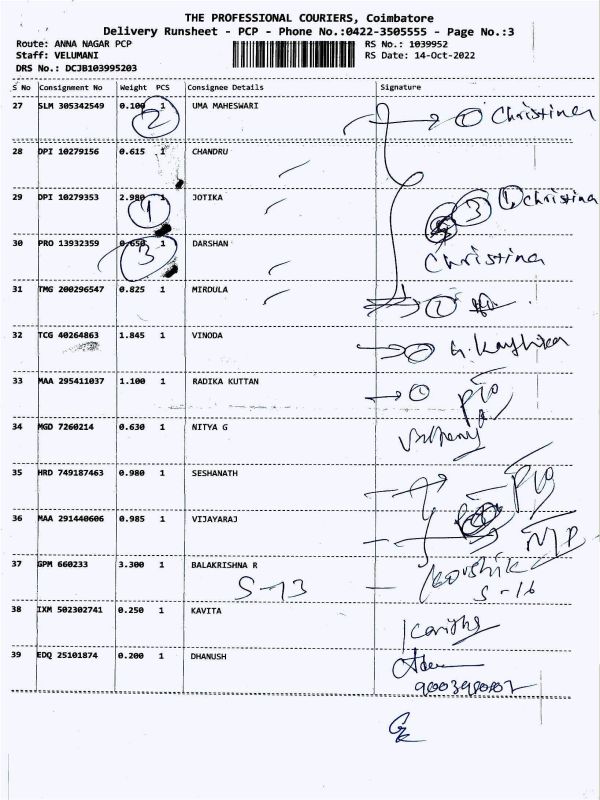 THE PROFESSIONAL COURIERS, Coimbatore
Delivery Runsheet - PCP - Phone No.:0422-3505555 - Page No.:3
Route: ANNA NAGAR PCP RS No.: 1039952
Staff: VELUMANI RS Date: 14-Oct-2022
DRS No.: DCJB103995203
S No Consignment No Weight PCS Consignee Details Signature
27 SLM 305342549 0.100 1 UMA MAHESWARI
2 1 Christina
28 DPI 10279156 0.615 1 CHANDRU
29 DPI 10279353 2.980 1 JOTIKA
1 3 1 Christina
30 PRO 13932359 0.650 1 DARSHAN
3 Christina
31 TMG 200296547 0.825 1 MIRDULA
32 TCG 40264863 1.845 1 VINODA
33 MAA 295411037 1.100 1 RADIKA KUTTAN
34 MGD 7260214 0.630 1 NITYA G
35 HRD 749187463 0.980 1 SESHANATH
36 MAA 291440606 0.985 1 VIJAYARAJ
37 GPM 660233 3.300 1 BALAKRISHNA R
S-13 S-16
38 IXM 502302741 0.250 1 KAVITA
39 EDQ 25101874 0.200 1 DHANUSH